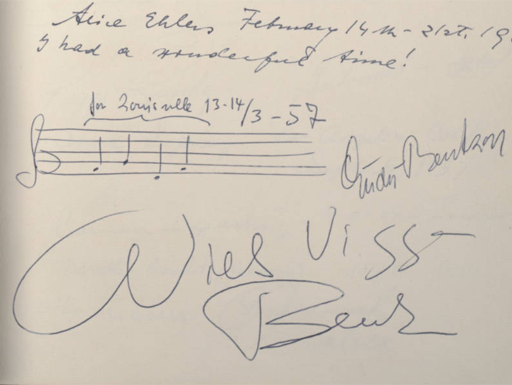 Alice Ehlers February 14th - 21st, 19
I had a wonderful time!
for Louisville 13-14/3-57
Bentzon
Niels Viggo
Bentz